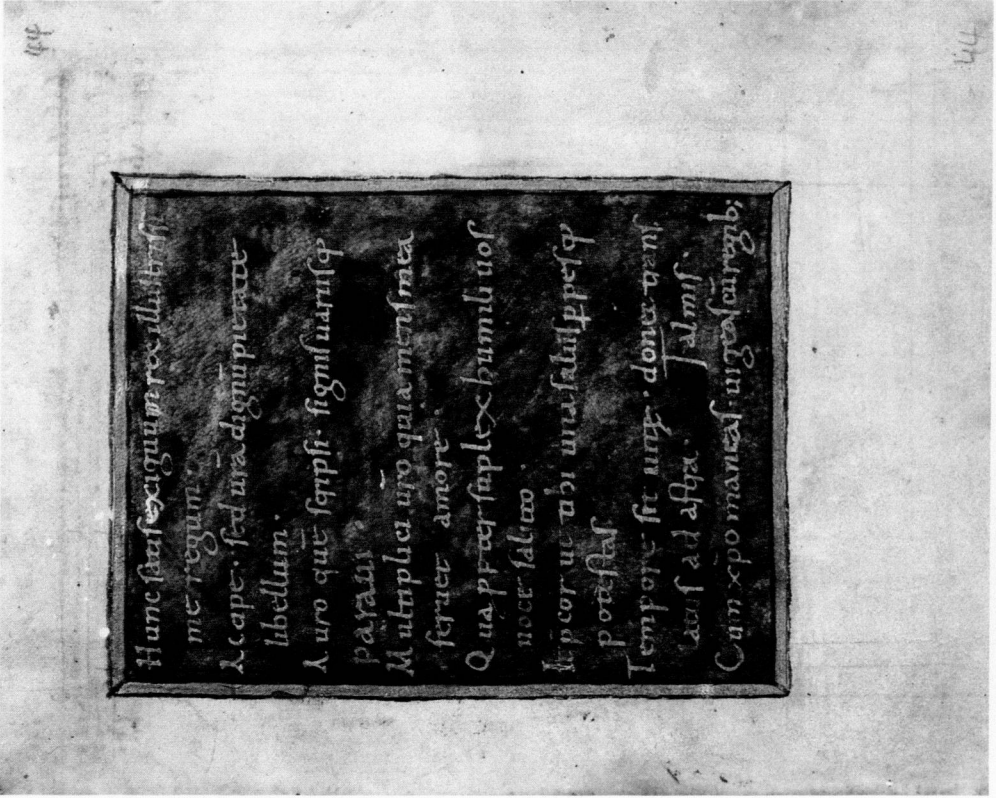 44
44
Hunc satis exiguum rex illustrissi
me regum
Accipe. sed urā dignū pietate
libellum.
Auro quē scripsi. signis uariisq;
paraui
Multiplici uro quia mens mea
feruet amore.
Quapropter suplex humili uos
uoce saluto.
potestas
Tempore sit donec trans
ad astra. almis.
Cum xp̄o maneas. uigeas cū regib;